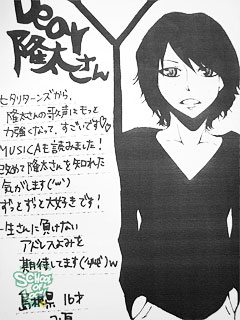 Dear
隆太さん
ヒタリターンズから、
隆太さんの歌声にもっと
力強くなって、すごいです♡♡
MUSICAも読みました!
改めて隆太さんを知れた
気がします('ω')
ずっとずっと大好きです!
一生さんに負けない
アドレスよみを
期待してます w
SCHOOL OF
島根県 16才